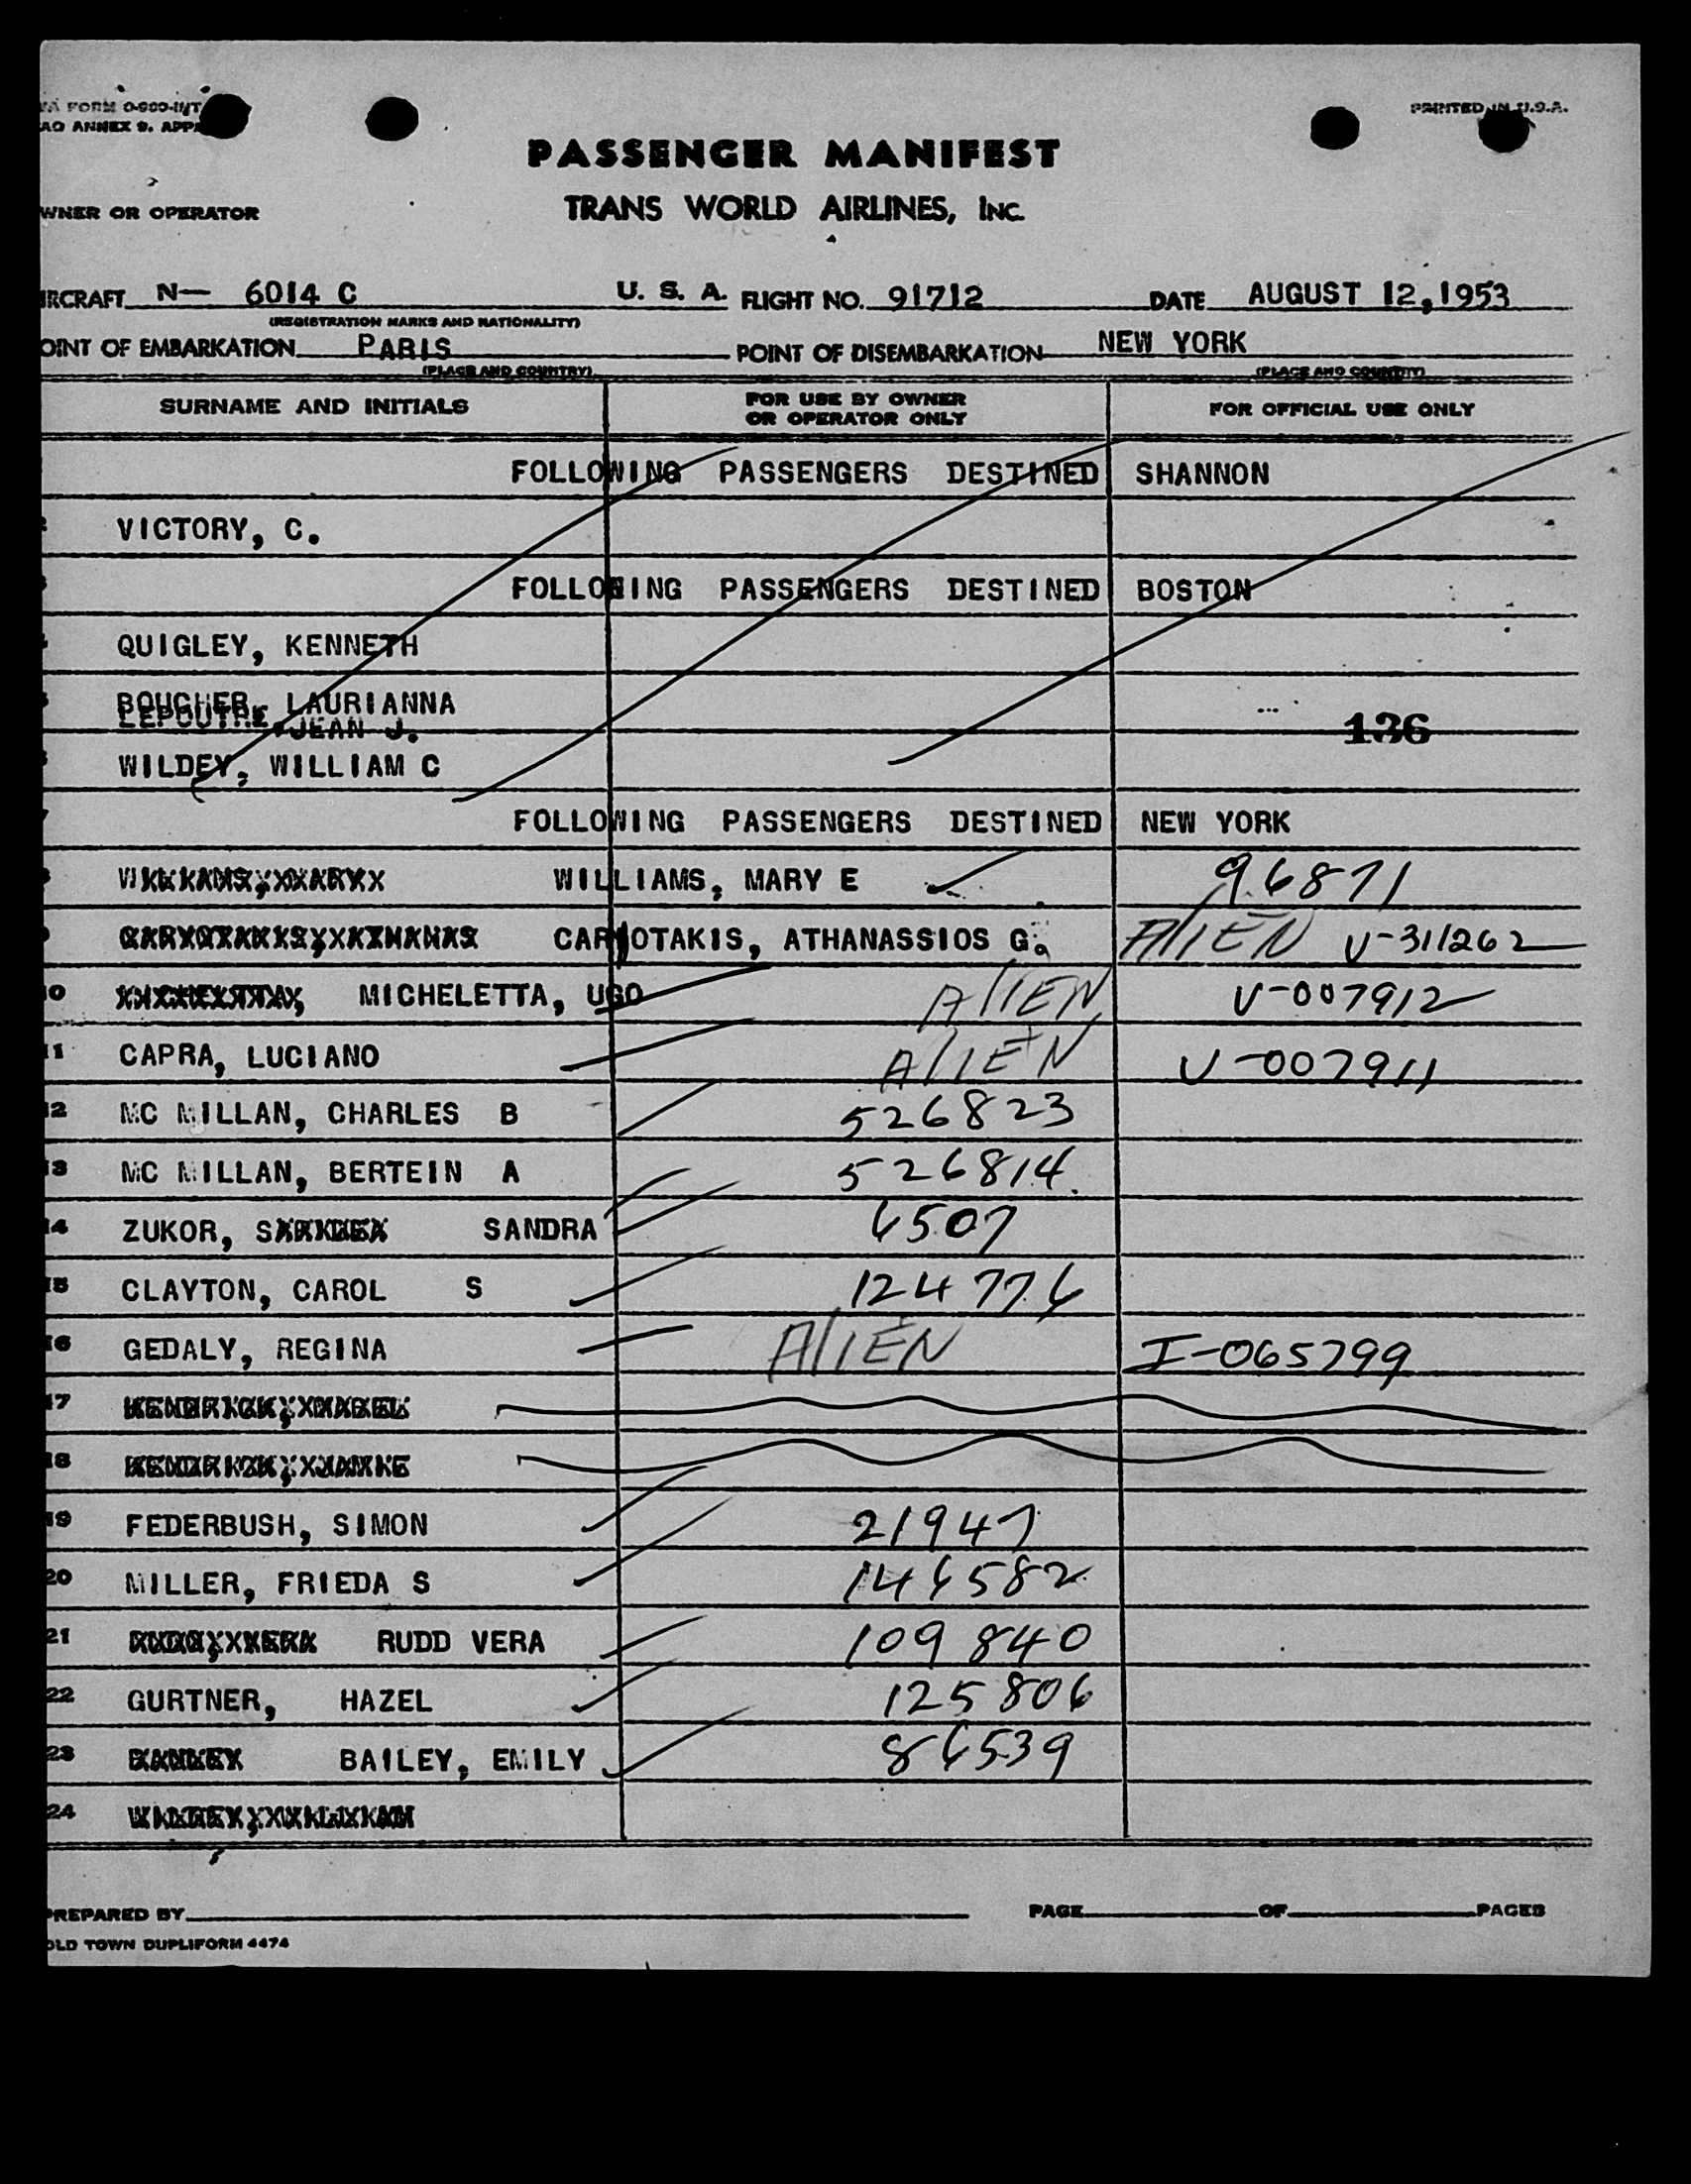 FORM 0-900-INT
AO ANNEX 9. APP
PRINTED IN U.S.A.
PASSENGER MANIFEST
WNER OR OPERATOR TRANS WORLD AIRLINES, INC.
IRCRAFT N— 6014 C U. S. A. FLIGHT NO. 91712 DATE AUGUST 12, 1953
(REGISTRATION MARKS AND NATIONALITY)
OINT OF EMBARKATION PARIS POINT OF DISEMBARKATION NEW YORK
(PLACE AND COUNTRY) (PLACE AND COUNTRY)
SURNAME AND INITIALS FOR USE BY OWNER OR OPERATOR ONLY FOR OFFICIAL USE ONLY
FOLLOWING PASSENGERS DESTINED SHANNON
VICTORY, C.
FOLLOWING PASSENGERS DESTINED BOSTON
QUIGLEY, KENNETH
BOUCHER, LAURIANNA
LEPOUTRE, JEAN J. 136
WILDEY, WILLIAM C
FOLLOWING PASSENGERS DESTINED NEW YORK
WILLIAMS, MARY E 96871
OTAKIS, ATHANASSIOS G. ALIEN V-311262
10 MICHELETTA, UGO ALIEN V-007912
11 CAPRA, LUCIANO ALIEN V-007911
12 MC MILLAN, CHARLES B 526823
13 MC MILLAN, BERTEIN A 526814
14 ZUKOR, SANDRA 6507
15 CLAYTON, CAROL S 124776
16 GEDALY, REGINA ALIEN I-065799
17
18
19 FEDERBUSH, SIMON 21947
20 MILLER, FRIEDA S 146582
21 RUDD VERA 109840
22 GURTNER, HAZEL 125806
23 BAILEY, EMILY 86539
24
PREPARED BY PAGE OF PAGES
OLD TOWN DUPLIFORM 4474